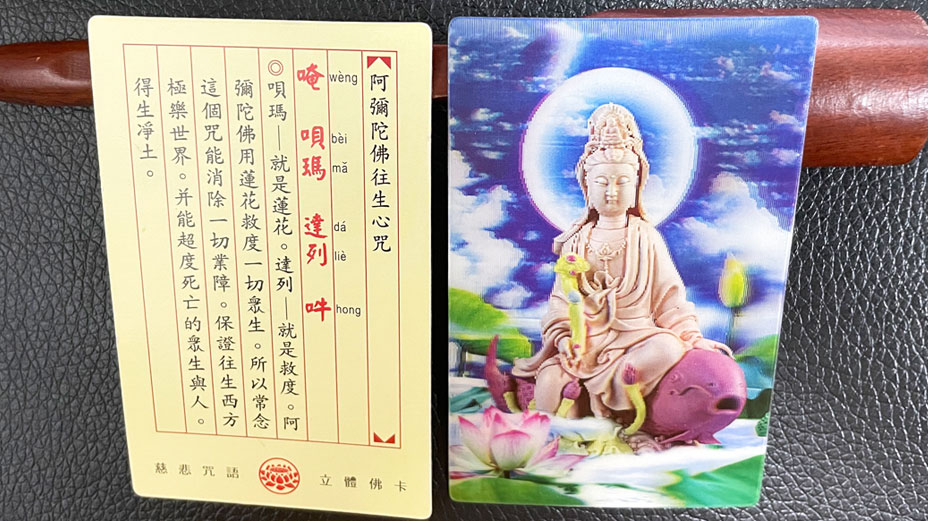 阿彌陀佛往生心咒
唵 唄瑪 達列 吽
wèng bèi mǎ dá liè hong
◎唄瑪—就是蓮花。達列—就是救度。阿
彌陀佛用蓮花救度一切眾生。所以常念
這個咒能消除一切業障。保證往生西方
極樂世界。并能超度死亡的眾生與人。
得生凈土。
慈悲咒語 立體佛卡